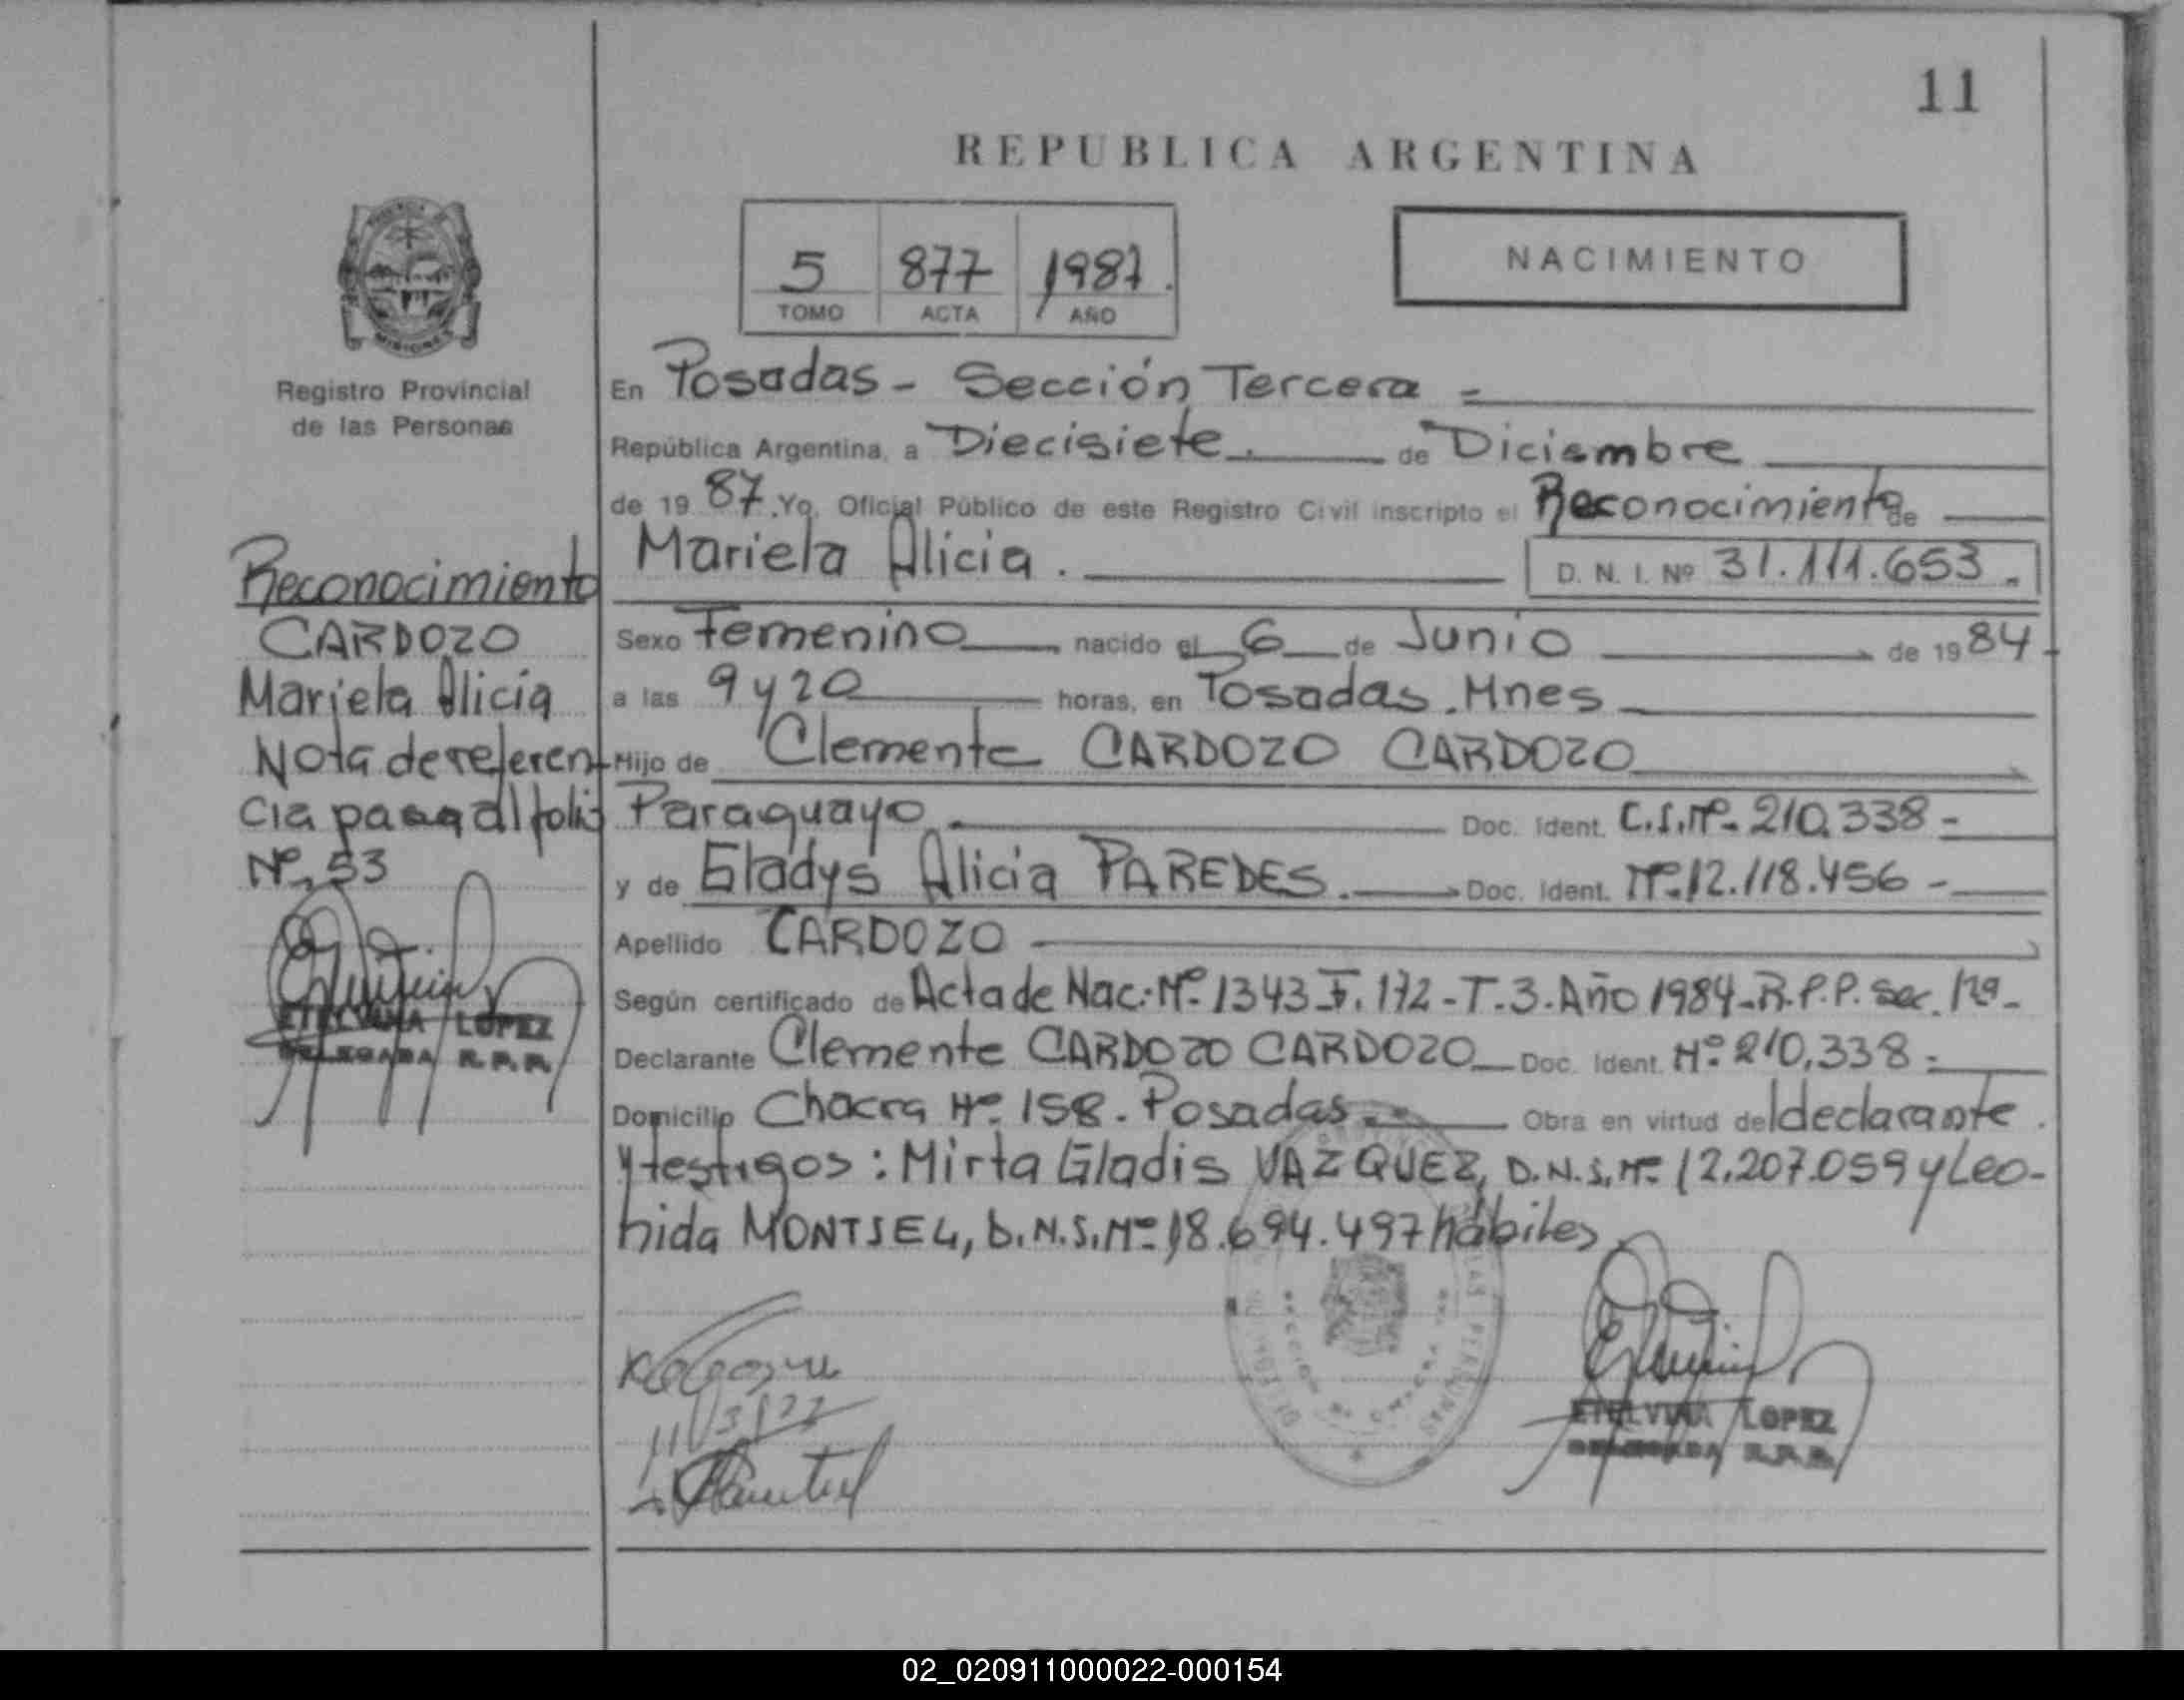 11
REPUBLICA ARGENTINA
5 877 1987.
TOMO ACTA AÑO
NACIMIENTO
MISIONES
Registro Provincial
de las Personas
En Posadas - Sección Tercera =
República Argentina, a Diecisiete. de Diciembre
de 19 87. Yo, Oficial Público de este Registro Civil inscripto el Reconocimiento de
Mariela Alicia. D. N. I. Nº 31.111.653.
Sexo Femenino nacido el 6 de Junio de 19 84
a las 9 y 20 horas, en Posadas. Mnes
Hijo de Clemente CARDOZO CARDOZO
Paraguayo. Doc. Ident. C.I.Nº- 210.338-
y de Gladys Alicia PAREDES. Doc. Ident. Nº-12.118.456-
Apellido CARDOZO
Según certificado de Acta de Nac: Nº- 1343 F. 172-T.3. Año 1984-R.P.P. Sec. 1ra-
Declarante Clemente CARDOZO CARDOZO Doc. Ident. Nº- 210.338-
Domicilio Chacra Nº- 158. Posadas. Obra en virtud del declarante
y testigos: Mirta Gladis VAZQUEZ, D.N.I. Nº- 12.207.059 y Leo-
nida MONTSEL, D.N.I. Nº- 18.694.497 hábiles
Reconocimiento
CARDOZO
Mariela Alicia
Nota de referen
cia pasa al folio
Nº- 53
ETELVINA LOPEZ
DELEGADA R.P.P.
11/3/22
ETELVINA LOPEZ
DELEGADA R.P.P.
02_020911000022-000154